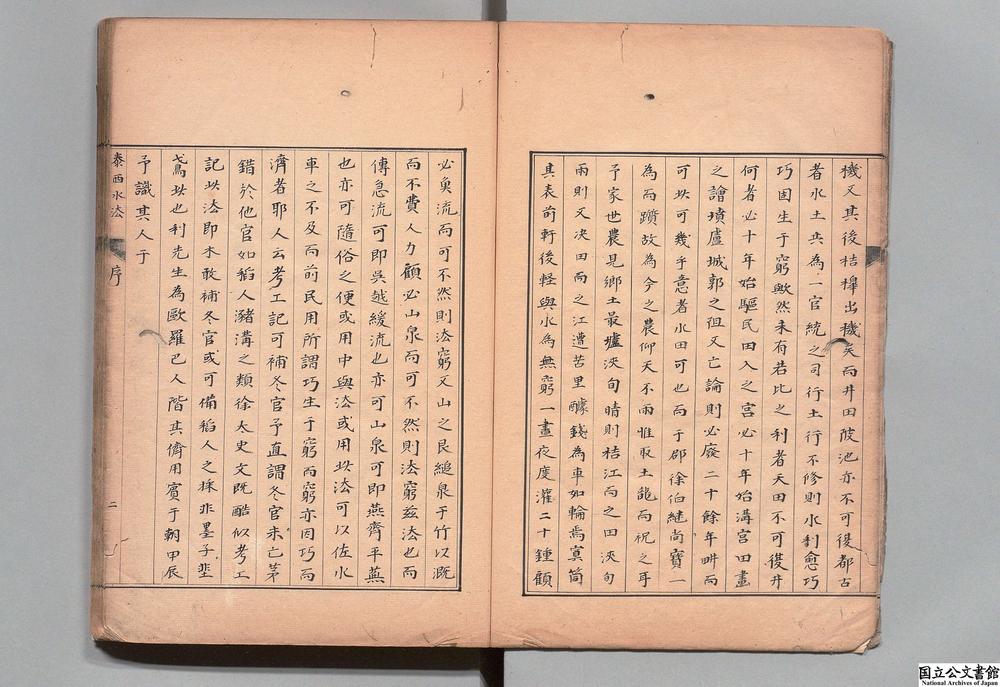 機又其後桔橰出機矣而井田陂池亦不可復都古
者水土共為一官統之司行土行不修則水利愈巧
巧固生于窮歟然未有若比之利者夫田不可復井
何者必十年始驅民田入之宮必十年始溝宮田畫
之譮墳廬城郭之徂又亡論則必廢二十餘年畊而
可㠯可幾乎意者水田可也而于郡徐伯継尚寶一
為而躓故為今之農仰天不雨惟取土龍而祝之耳
予家世農見鄉土最壚浹旬晴則桔江而之田浹旬
雨則又决田而之江遭苦里醵錢為車如輪焉寘筒
其表前軒後軽與水為無窮一晝夜度灌二十鍾顧
必臭流而可不然則法窮又山之艮縋泉于竹以溉
而不費人力顧必山泉而可不然則法窮玆法也而
傳急流可即吳越緩流也亦可山泉可即燕齊平蕪
也亦可隨俗之便或用中與法或用㠯法可以佐水
車之不及而前民用所謂巧生于窮而窮亦因巧而
濟者耶人云考工記可補冬官予直謂冬官未亡苐
錯於他官如稻人瀦溝之類徐太史文既酷似考工
記㠯法即未敢補冬官或可備稻人之採非墨子蜚
鳶㠯也利先生為歐羅巴人階其儕用賓于朝甲辰
予識其人于
泰西水法 序
二
国立公文書館
National Archives of Japan